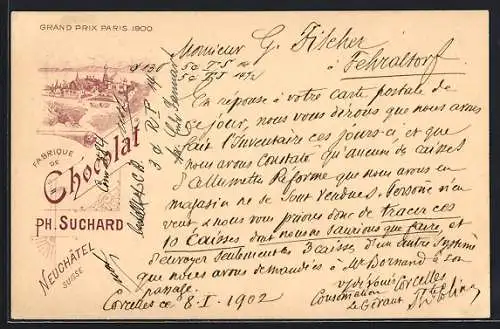 GRAND PRIX PARIS 1900
FABRIQUE
DE
Chocolat
PH. SUCHARD
NEUCHÂTEL
SUISSE
Monsieur G. Fischer
à Fehraltorf
En réponse à votre carte postale de
ce jour, nous vous dirons que nous avons
fait l'Inventaire ces jours-ci et que
nous avons constaté qu'aucune de caisses
d'allumettes Réforme que nous avons en
magasin ne se sont vendues. Personne n'en
veut, & nous vous prions donc de tracer ces
10 Caisses dont nous ne saurions que faire, et
d'envoyer seulement les 3 caisses d'un autre système
que nous avons demandées à Mr Bornand à son
passage.
Consommation Corcelles
Le Gérant
Corcelles ce 8-I-1902